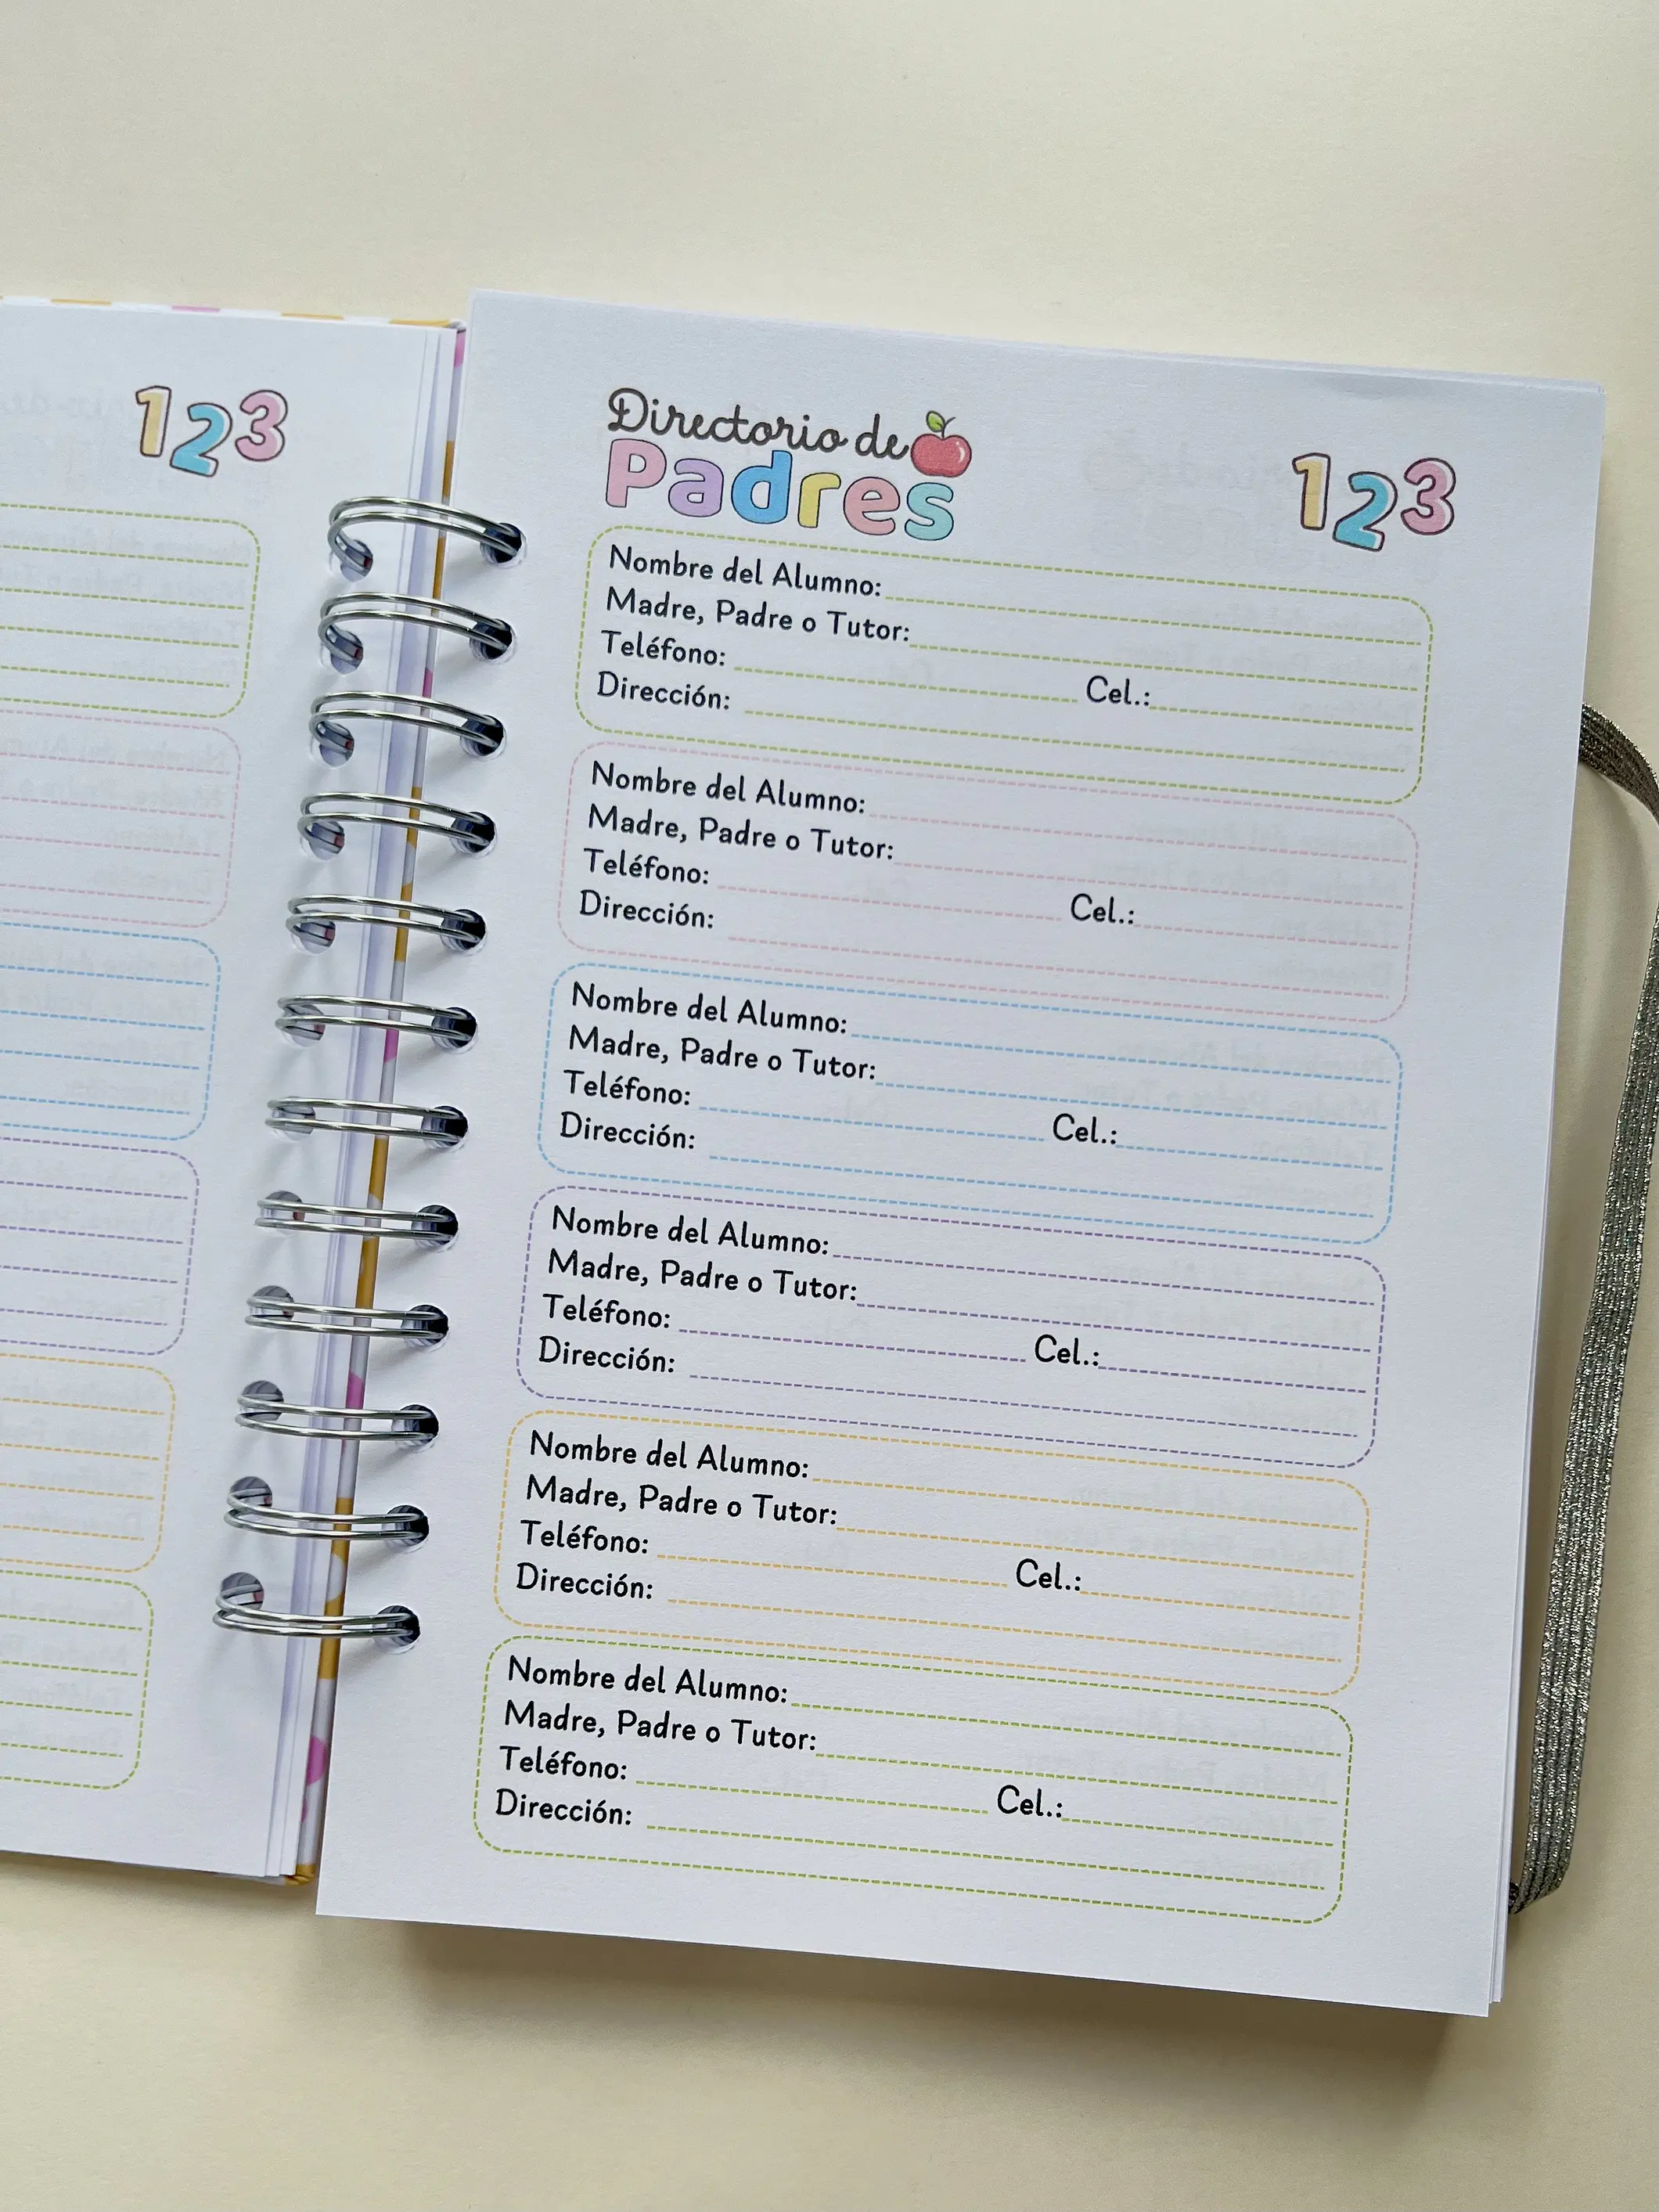 123
Directorio de
Padres
123
Nombre del Alumno:
Madre, Padre o Tutor:
Teléfono: Cel.:
Dirección:
Nombre del Alumno:
Madre, Padre o Tutor:
Teléfono: Cel.:
Dirección:
Nombre del Alumno:
Madre, Padre o Tutor:
Teléfono: Cel.:
Dirección:
Nombre del Alumno:
Madre, Padre o Tutor:
Teléfono: Cel.:
Dirección:
Nombre del Alumno:
Madre, Padre o Tutor:
Teléfono: Cel.:
Dirección:
Nombre del Alumno:
Madre, Padre o Tutor:
Teléfono: Cel.:
Dirección: